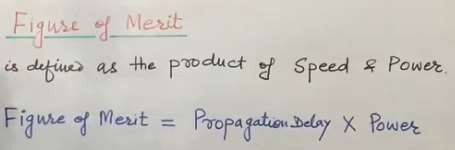 Figure of Merit
is defined as the product of Speed & Power.
Figure of Merit = Propagation Delay X Power